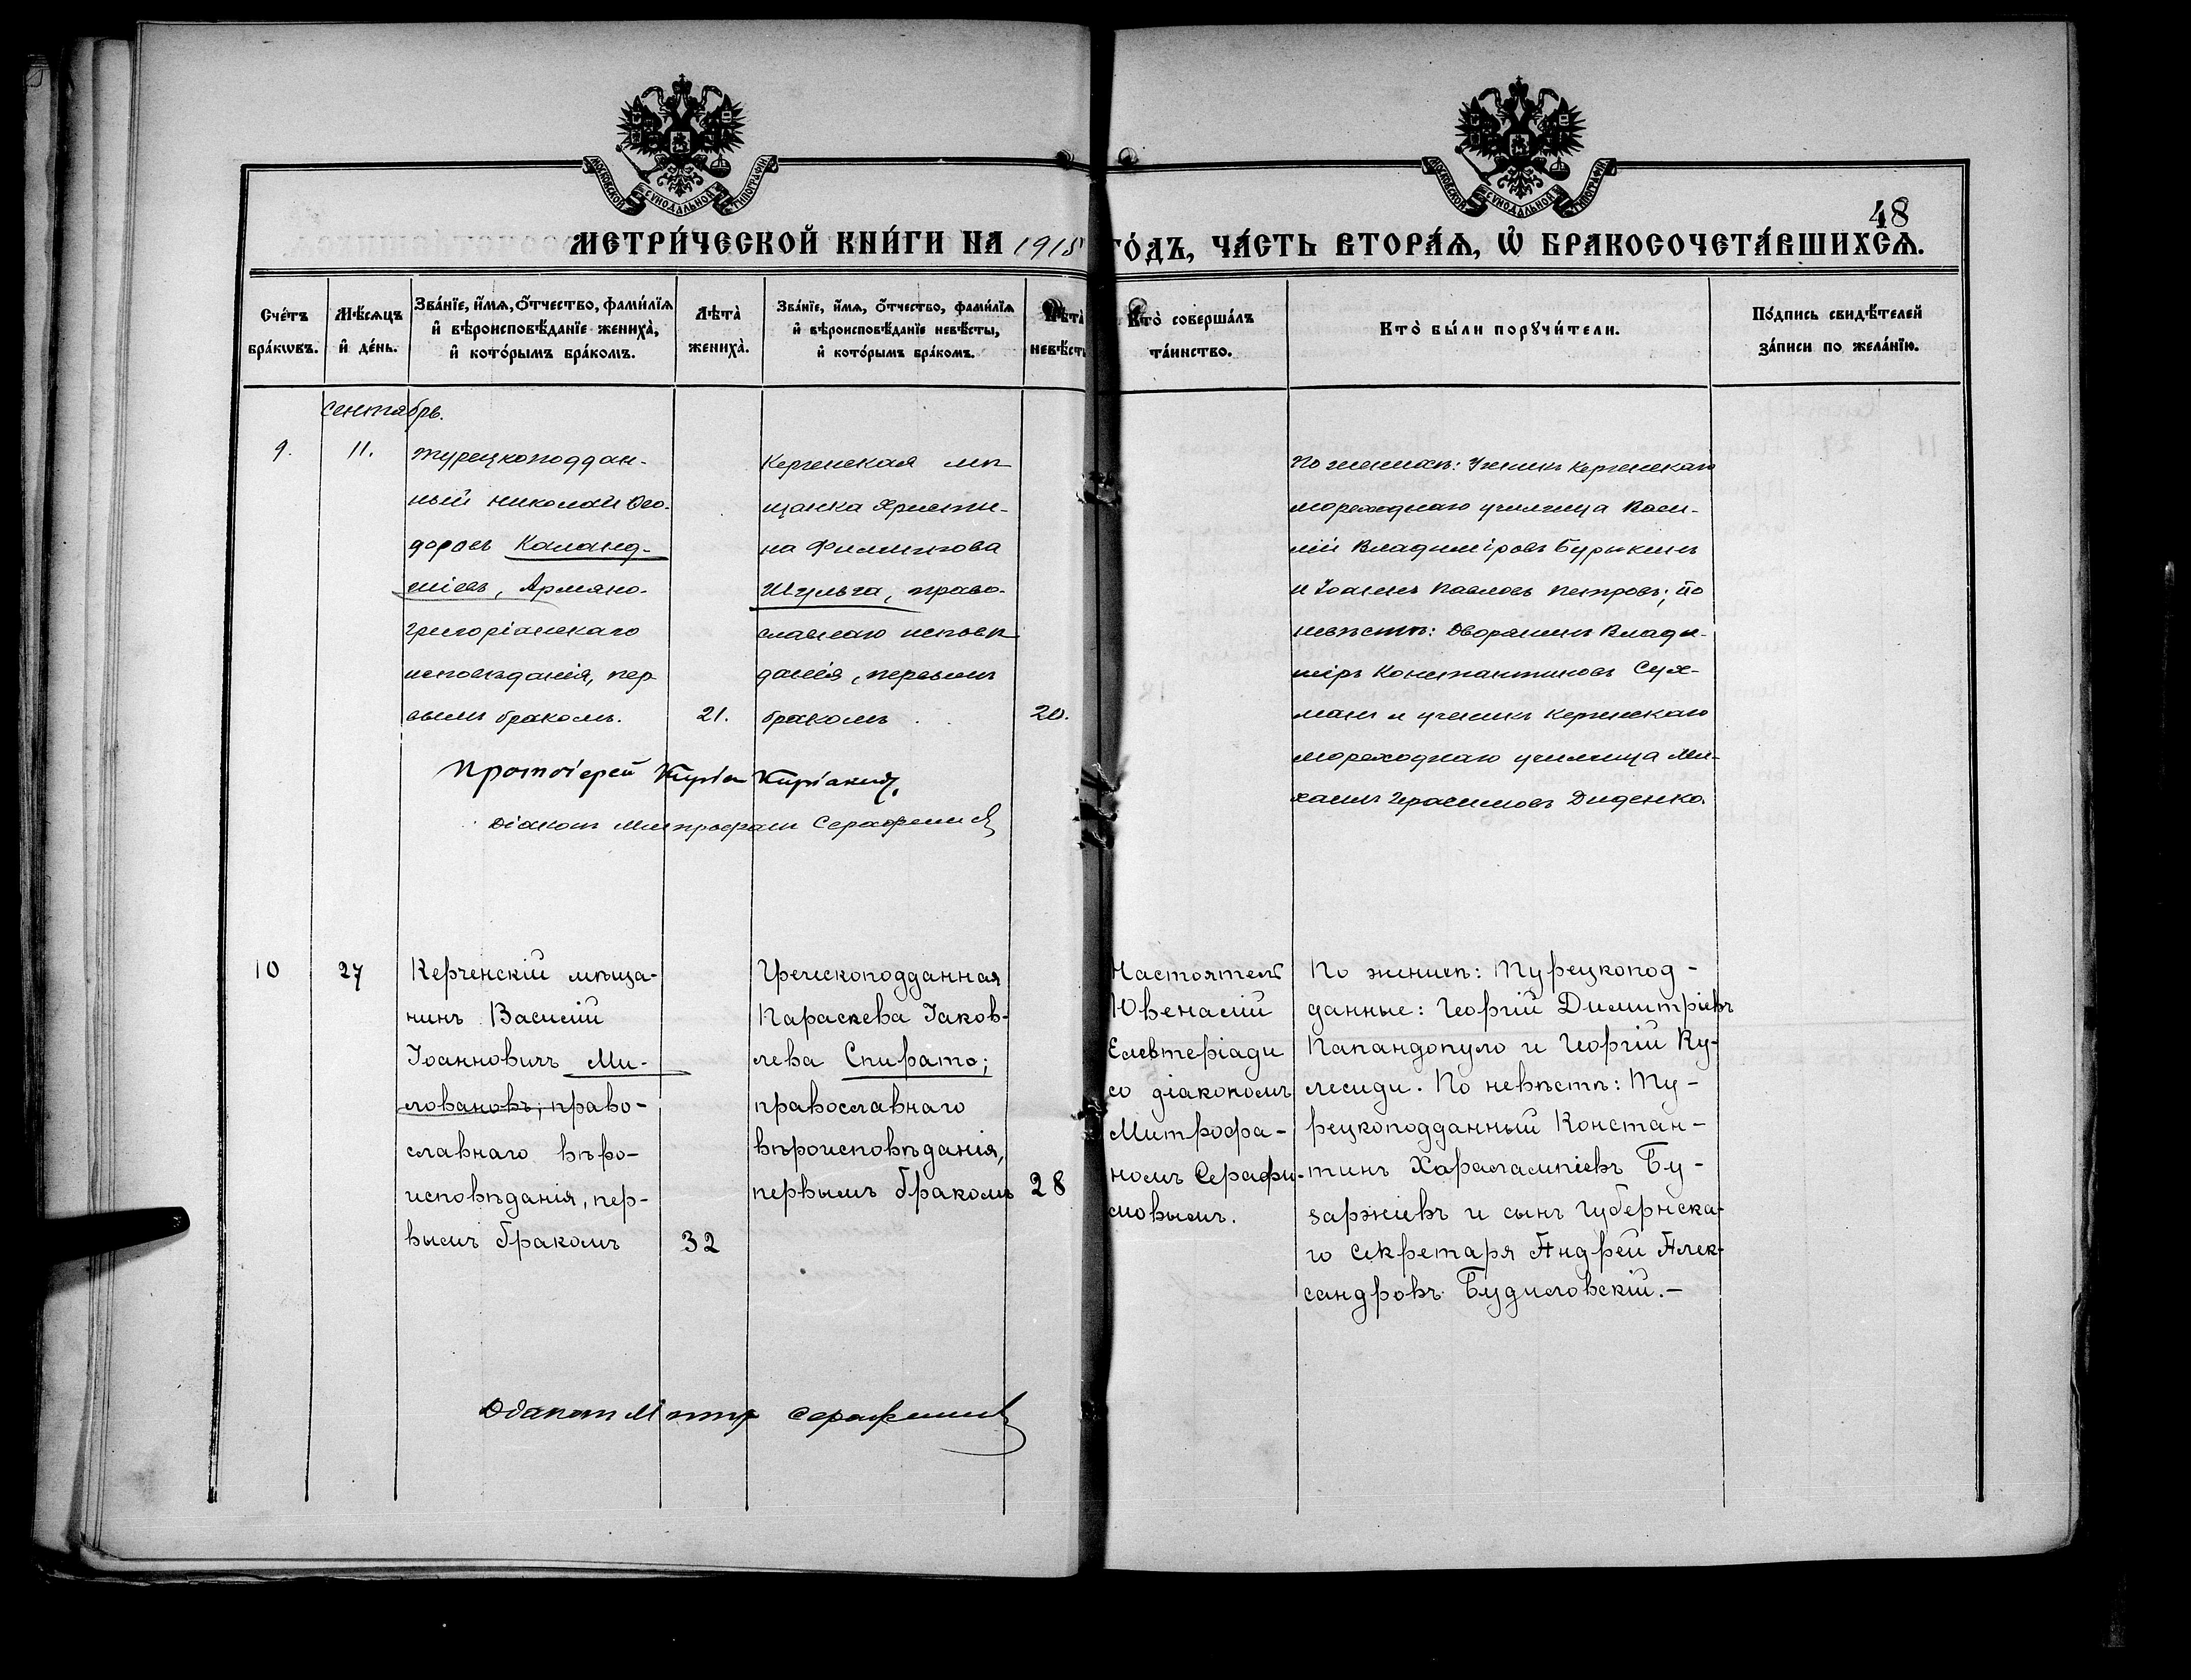 МОСКОВСКОЙ СУНОДАЛЬНОЙ ТИПОГРАФІИ
МОСКОВСКОЙ СУНОДАЛЬНОЙ ТИПОГРАФІИ
48
МЕТРИ́ЧЕСКОЙ КНИ́ГИ НА 1915
ГО́ДЪ, ЧА́СТЬ ВТОРА́Ѧ, Ѡ҆ БРАКОСОЧЕТА́ВШИХСѦ.
Сче́тъ
бра́кωвъ.
Мѣ́сяцъ
и҆ де́нь.
Зва́нїе, и҆́мѧ, ѻ҆́тчество, фами́лїѧ
и҆ вѣроисповѣ́данїе жениха̀,
и҆ кото́рымъ бра́комъ.
Лѣта̀
жениха̀.
Зва́нїе, и҆́мѧ, ѻ҆́тчество, фами́лїѧ
и҆ вѣроисповѣ́данїе невѣ́сты,
и҆ кото́рымъ бра́комъ.
Лѣта̀
невѣ́ст
Кто̀ соверша́лъ
та́инство.
Кто̀ бы́ли порꙋчи́тели.
По́дпись свидѣ́телей
за́писи по жела́нїю.
сентябрь.
9.
11.
Турецкоподдан-
ный Николай Ѳео-
доровъ Каланд-
жіевъ, Армяно-
григоріанскаго
исповѣданія, пер-
вымъ бракомъ.
21.
Керченская мѣ-
щанка Христи-
на Филиппова
Шульга, право-
славнаго исповѣ-
данія, первымъ
бракомъ
20.
По женихѣ: Ученикъ Керченскаго
мореходнаго училища Васи-
лій Владиміровъ Бурыкинъ
и Іоаннъ Павловъ Петровъ; по
невѣстѣ: Дворянинъ Влади-
міръ Константиновъ Сух-
манъ и ученикъ Керченскаго
мореходнаго училища Ми-
хаилъ Герасимовъ Диденко.
Протоіерей Кирыакиди.
Діаконъ Митрофанъ Серафимовъ
10
27
Керченскій мѣща-
нинъ Василій
Іоанновичъ Ми-
ловановъ; право-
славнаго вѣро-
исповѣданія, пер-
вымъ бракомъ
32
Грецкоподданная
Параскева Іаков-
лева Спирато;
православнаго
вѣроисповѣданія,
первымъ бракомъ
28
Настоятель
Ювеналій
Елевтеріади
со діакономъ
Митрофа-
номъ Серафи-
мовымъ.
По женихѣ: Турецкопод-
данные: Георгій Димитріевъ
Папандопуло и Георгій Ку-
лесиди. По невѣстѣ: Ту-
рецкоподданный Констан-
тинъ Харалампіевъ Бу-
заржіевъ и сынъ губернска-
го секретаря Андрей Алек-
сандровъ Будиловскій.-
Діаконъ Митр Серафимовъ